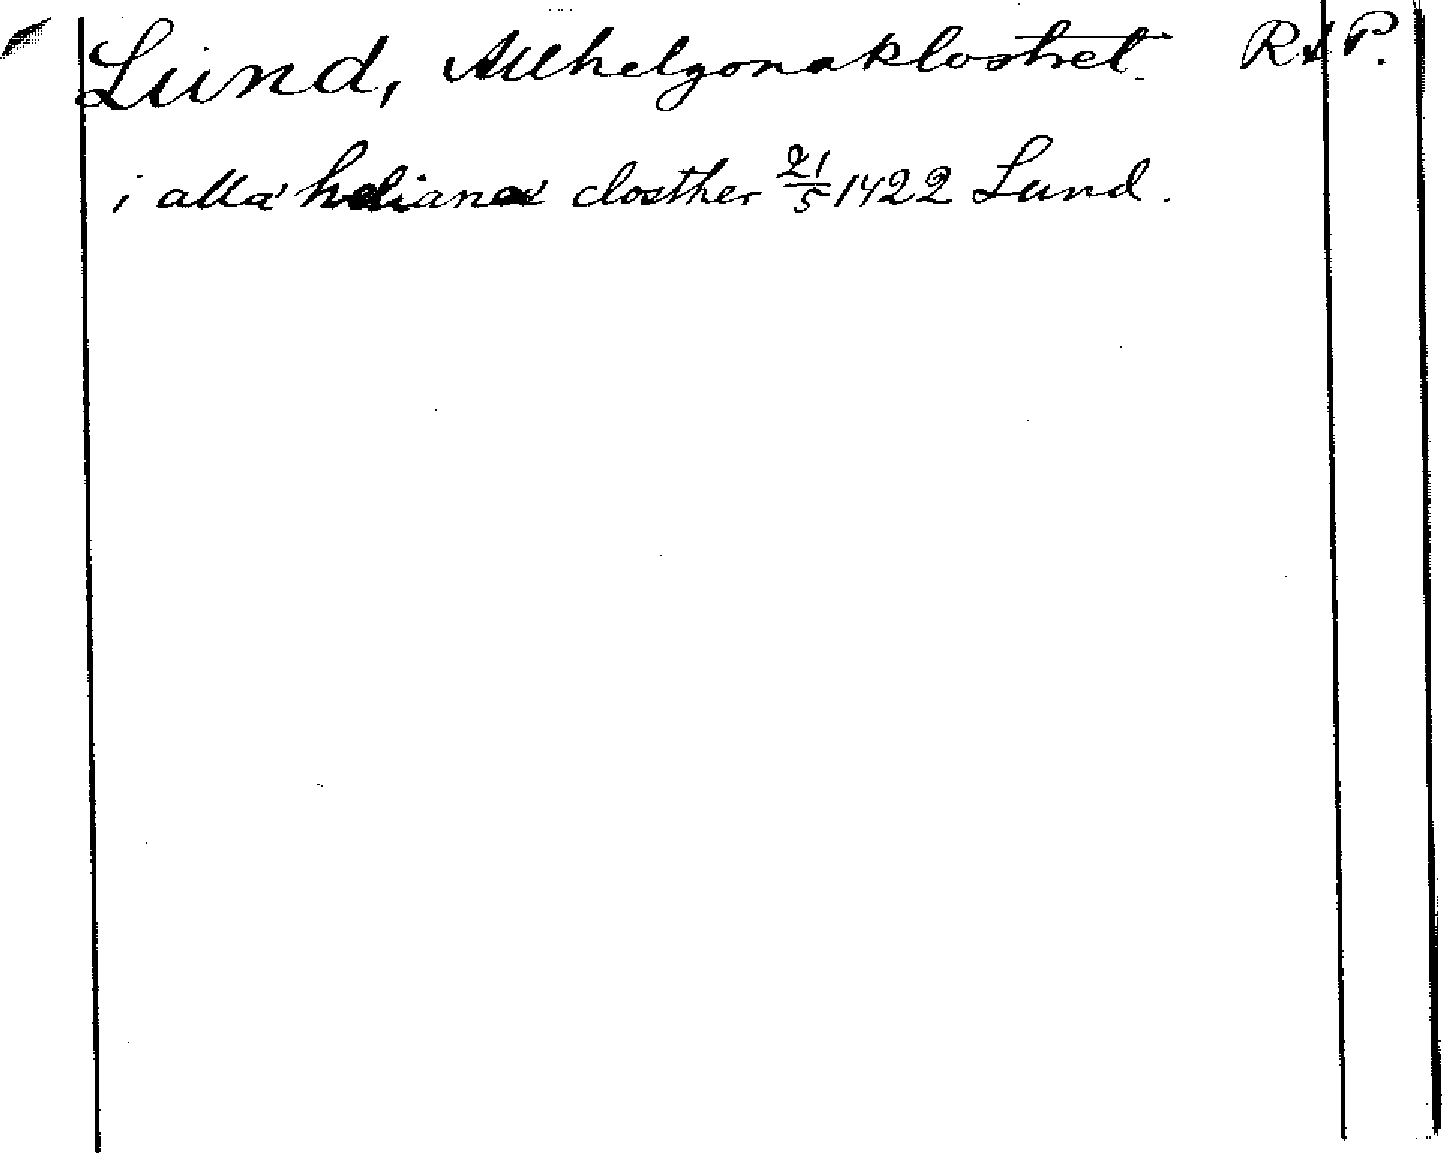 Lund, Allhelgonaklostret. RAP.
i alla heliana closther 21/5 1422 Lund.